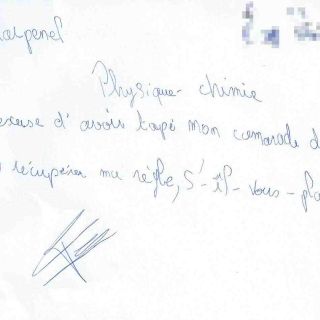 Physique-chimie
excuse d'avoir tapé mon camarade d
récupérer ma règle, s'-il-vous-pla